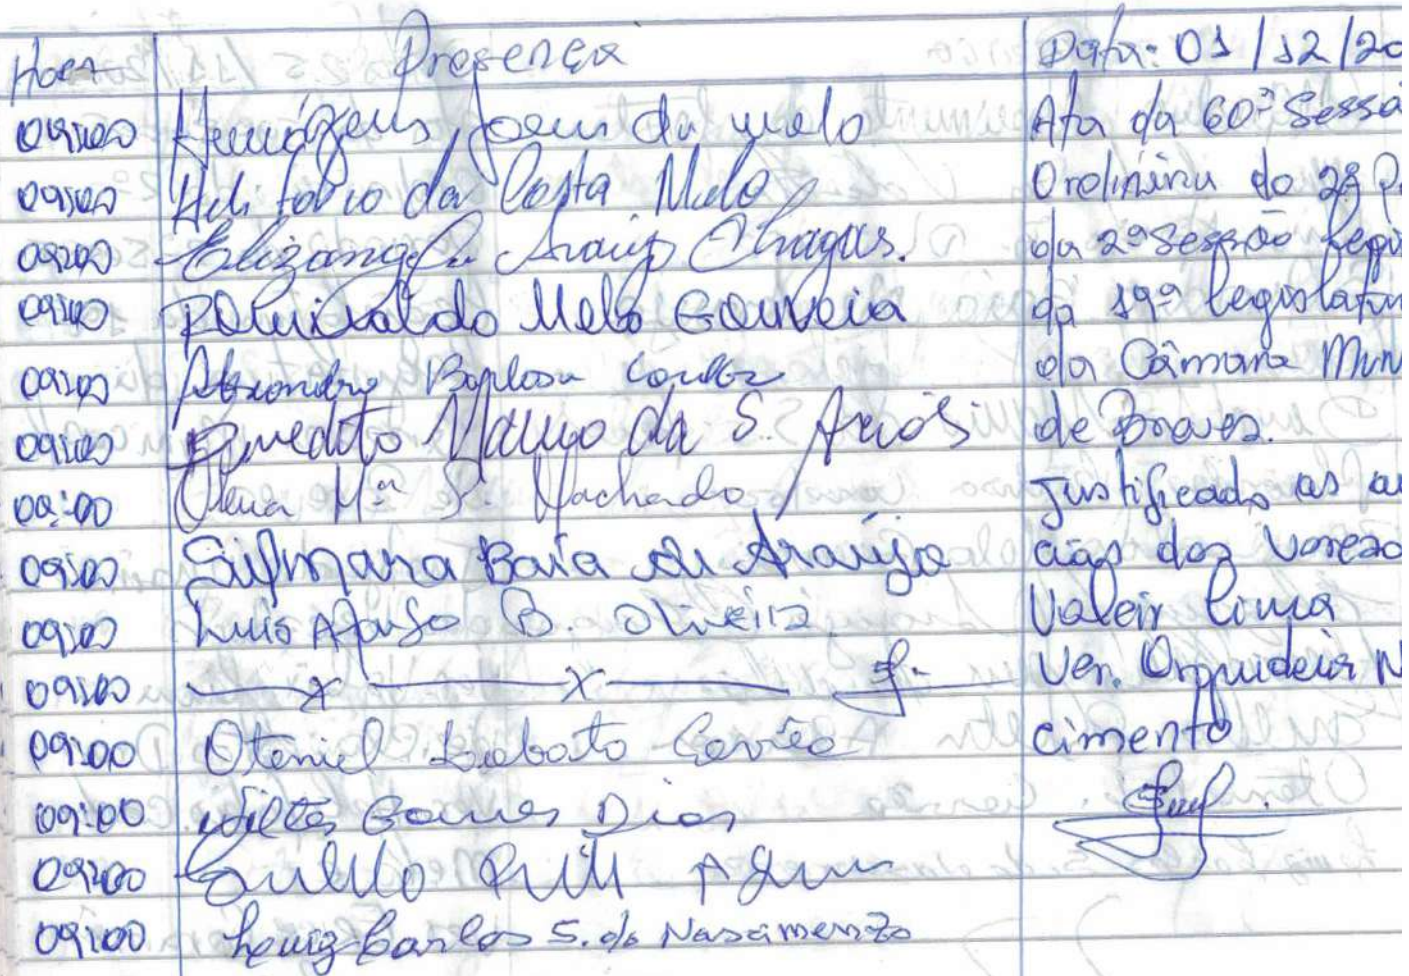 Hora Presença Data: 01/12/20
09:00 da Melo Ata da 60ª Sessã
09:00 Heli Fabio da Costa Melo Ordinária do 2º P
09:00 Elizangela Araujo Chagas. da 2ª Sessão Legis
09:00 Romivaldo Melo Gouveia da 19ª Legislatur
09:00 Alexandre Barbosa da Câmara Mun
09:00 Benedito da S. de Breves.
09:00 Mª P. Machado Justificado as au
09:00 Baía de Araújo cias dos Veread
09:00 Luis Afonso B. Oliveira Valcir Lima
09:00 x x Ver. Orquideia N
09:00 Oteniel Lobato cimento
09:00 Gomes Dias
09:00
09:00 Luiz Carlos S. do Nascimento